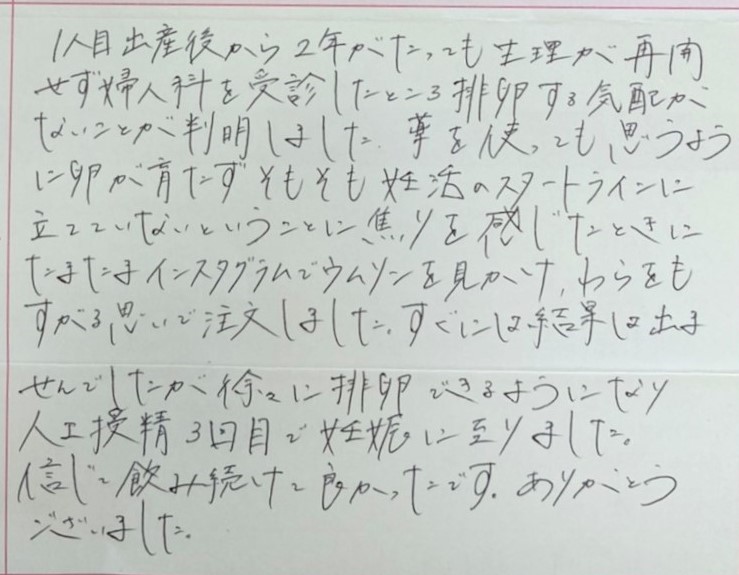 1人目出産後から2年がたっても生理が再開
せず婦人科を受診したところ排卵する気配が
ないことが判明しました。薬を使っても思うよう
に卵が育たずそもそも妊活のスタートラインに
立てていないということに焦りを感じたときに
たまたまインスタグラムでウムリンを見かけ、わらをも
すがる思いで注文しました。すぐには結果は出ま
せんでしたが徐々に排卵できるようになり
人工授精3回目で妊娠に至りました。
信じて飲み続けて良かったです。ありがとう
ございました。